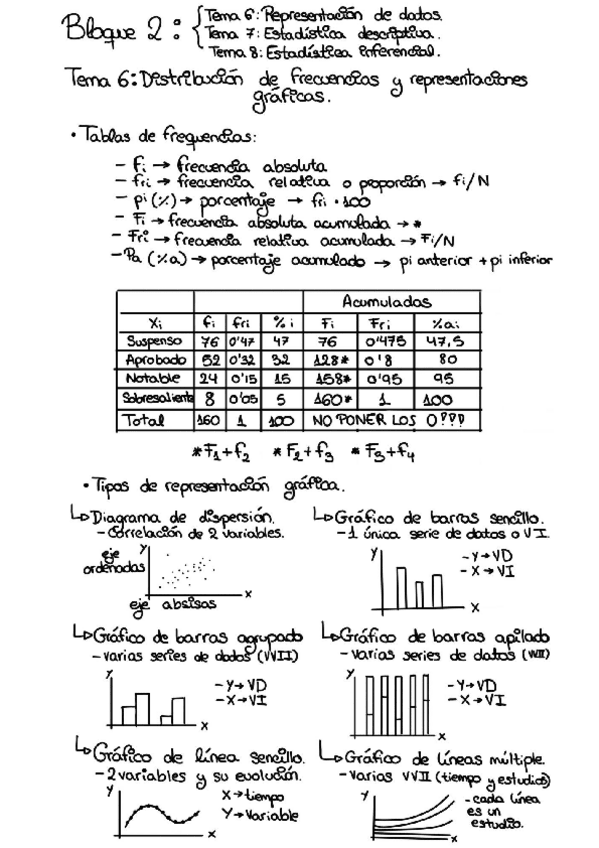 Bloque 2: { Tema 6: Representación de datos.
Tema 7: Estadística descriptiva.
Tema 8: Estadística inferencial.
Tema 6: Distribución de frecuencias y representaciones
gráficas.
• Tablas de frequencias:
- fi → frecuencia absoluta
- fri → frecuencia relativa o proporción → fi/N
- pi (%) → porcentaje → fri · 100
- Fi → frecuencia absoluta acumulada → *
- Fri → frecuencia relativa acumulada → Fi/N
- Pa (%a) → porcentaje acumulado → pi anterior + pi inferior
Acumuladas
Xi fi fri %i Fi Fri %ai
Suspenso 76 0'47 47 76 0'475 47,5
Aprobado 52 0'32 32 128* 0'8 80
Notable 24 0'15 15 158* 0'95 95
Sobresaliente 8 0'05 5 160* 1 100
Total 160 1 100 NO PONER LOS 0???
*F1+f2 *F2+f3 *F3+f4
• Tipos de representación gráfica.
↳ Diagrama de dispersión.
- Correlación de 2 variables.
Y
eje
ordenadas
X
eje absisas
↳ Gráfico de barras sencillo.
- 1 única serie de datos o VI.
Y
- Y → VD
- X → VI
X
↳ Gráfico de barras agrupado
- varias series de datos (VVII)
Y
- Y → VD
- X → VI
X
↳ Gráfico de barras apilado
- varias series de datos (VVII)
Y
- Y → VD
- X → VI
X
↳ Gráfico de línea sencillo.
- 2 variables y su evolución.
Y
X → tiempo
Y → Variable
X
↳ Gráfico de líneas múltiple.
- Varias VVII (tiempo y estudios)
Y
- cada línea
es un
estudio.
X